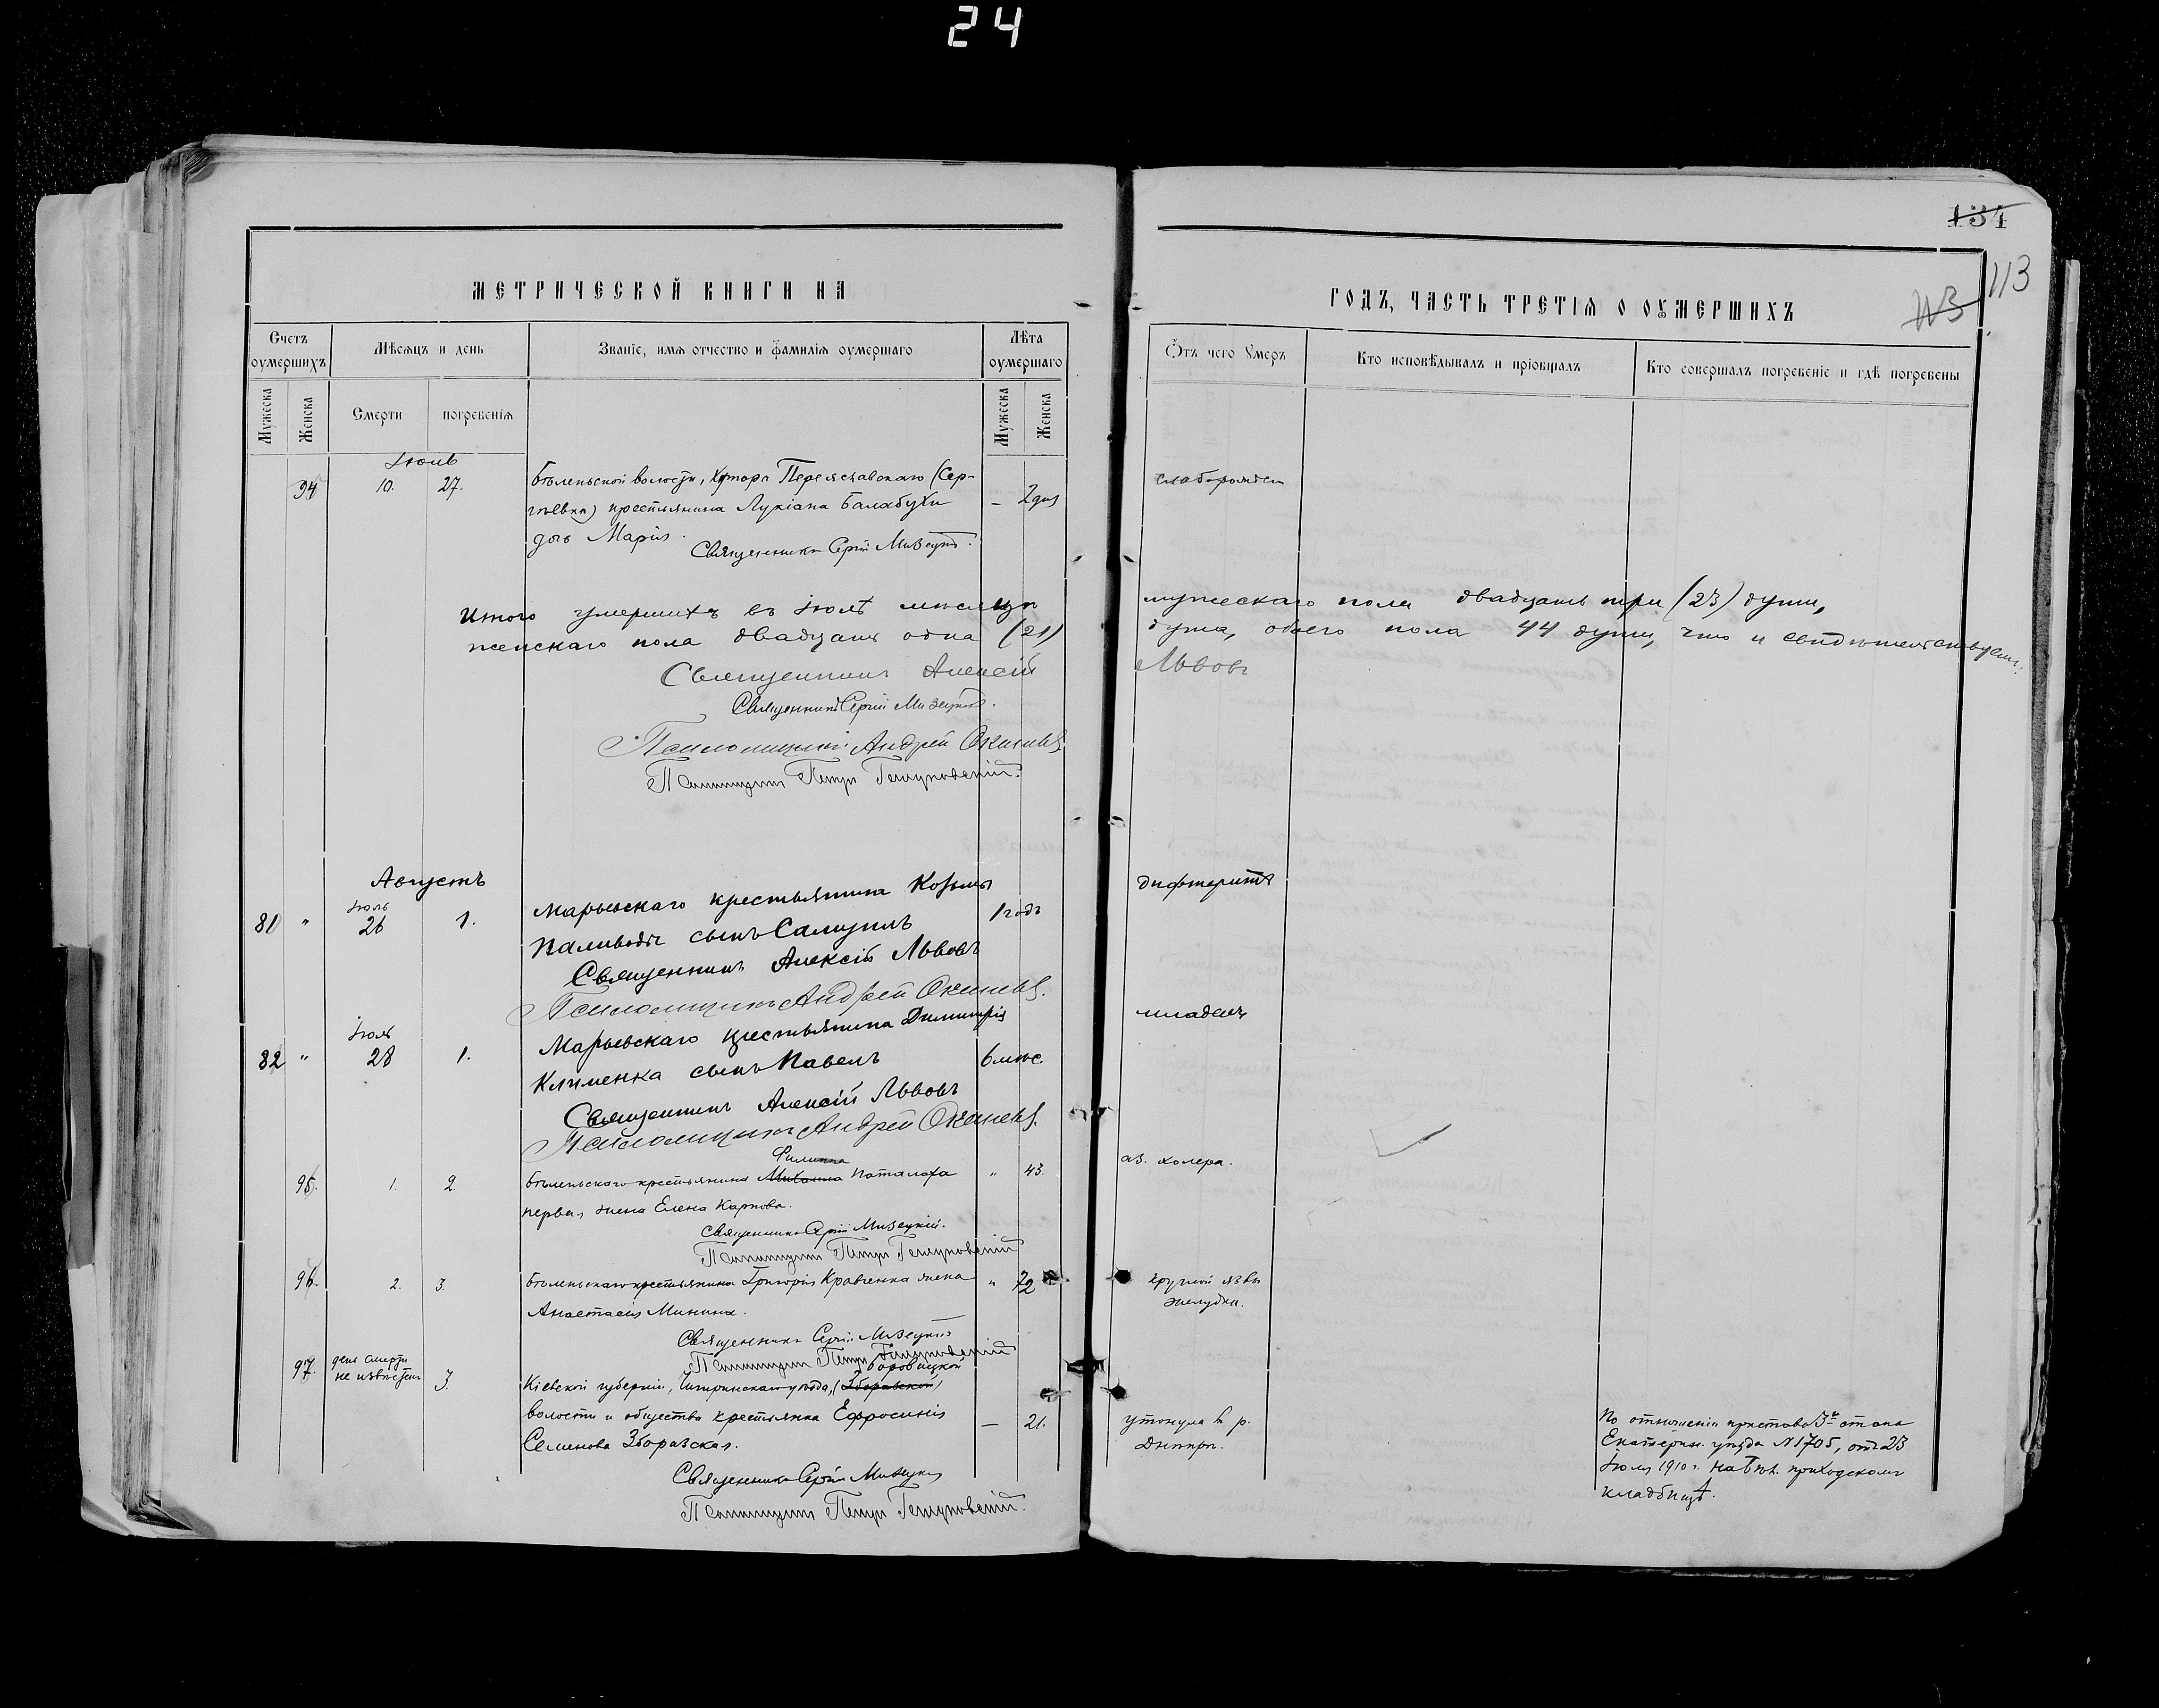 24
134
113
113
МЕТРИЧЕСКОЙ КНИГИ НА
ГОДЪ, ЧАСТЬ ТРЕТІЯ О ОУМЕРШИХЪ
Счетъ оумершихъ
Мѣсяцъ и день
Званіе, имя отчество и фамилія оумершаго
Лѣта оумершаго
Отъ чего Умеръ
Кто исповѣдывалъ и пріобщалъ
Кто совершалъ погребеніе и гдѣ погребены
Мужеска
Женска
Смерти
погребенія
Мужеска
Женска
Іюль
94 10. 27. Бѣленьской волости, хутора Переяславскаго (Сер- – 2 дня слаборожден
гѣевка) крестьянина Лукіана Балабухи
дочь Марія.
Священникъ Сергій Мизецкій.
Итого умершихъ въ Іюлѣ мѣсяцѣ мужескаго пола двадцать три (23) души,
женскаго пола двадцать одна (21) душа, обоего пола 44 души, что и свидѣтельствуемъ:
Священникъ Алексій Львовъ
Священникъ Сергій Мизецкій.
Псаломщикъ Андрей
Псаломщикъ Петръ
Августъ
Іюль
81 " 26 1. Марьевскаго крестьянина Козьмы 1 годъ дифтеритъ
Паливоды сынъ Самуилъ
Священникъ Алексій Львовъ
Псаломщикъ Андрей
Іюль
82 " 28 1. Марьевскаго крестьянина Димитрія 6 мѣс. младен.
Клименка сынъ Павелъ
Священникъ Алексій Львовъ
Псаломщикъ Андрей
Филиппа
95. 1. 2. Бѣленьскаго крестьянина Михаила Паталаха " 43. аз. холера.
первая жена Елена Карпова.
Священникъ Сергій Мизецкій.
Псаломщикъ Петръ
96. 2. 3. Бѣленьскаго крестьянина Григорія Кравченка жена " 72 круглой язвы
Анастасія Минина. желудка.
Священникъ Сергій Мизецкій
Псаломщикъ Петръ
Боровицкой
97. день смерти не извѣстенъ 3. Кіевской губерніи, Чигиринскаго уѣзда, (Зборавской)
волости и общества крестьянка Ефросинія – 21. утонула въ р.
Семенова Зборавская. Днѣпрѣ.
По отношенію пристава 3го стана
Екатерин. уѣзда № 1705, отъ 23
Іюля 1910 г. на Бѣл. приходскомъ
кладбищѣ.
Священникъ Сергій Мизецкій
Псаломщикъ Петръ